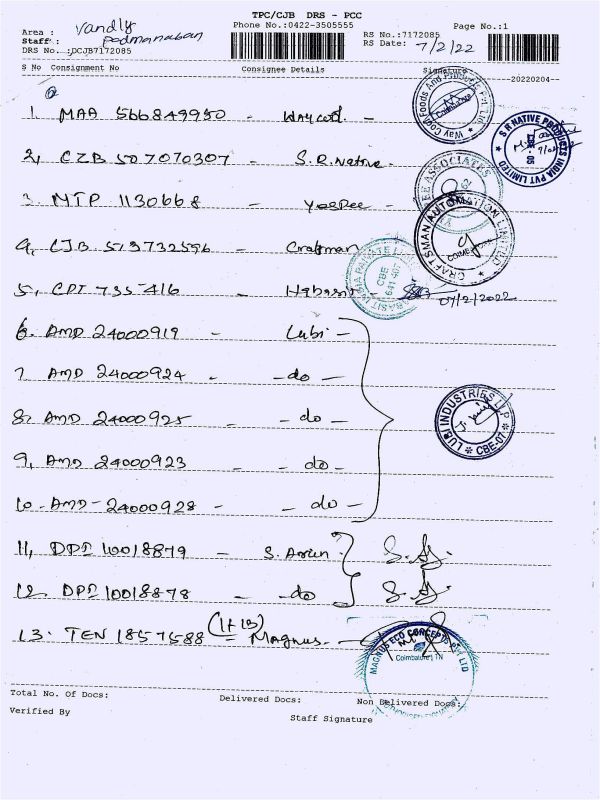 TPC/CJB DRS - PCC
Phone No.:0422-3505555
Page No.:1
Area : Vandly
Staff : Padmanaban
RS No.:7172085
DRS No. :DCJB7172085
RS Date: 7/2/22
S No Consignment No Consignee Details Signature
20220204
1. MAA 566849950 - Waycool -
2, CZB 507070307 - S.R. Native -
3. MTP 1130668 - Yespee -
4, CJB 513732596 - Craftsman
5, CPT 735416 - Habasit 07/2/2022
6. AMD 24000919 - Lubi -
7. AMD 24000924 - - do -
8. AMD 24000925 - - do
9, AMD 24000923 - - do -
10. AMD - 24000928 - - do -
11, DPI 10018879 - S. Arun
12. DPI 10018878 - do
13. TEN 1857588 (1+13) = Magnus. -
Way Cool Foods And Products Pvt. Ltd.
Coimbatore
S R NATIVE PRODUCTS INDIA PVT LIMITED
EE ASSOCIATES
CRAFTSMAN AUTOMATION LIMITED
COIMBATORE
HABASIT IAKOKA PRIVATE LIMITED
CBE
641 407
LUBI INDUSTRIES LLP
CBE-07
MAGNUS ECO CONCEPTS PVT LTD
Coimbatore | TN
AUTHORISED SIGNATORY
Total No. Of Docs: Delivered Docs: Non Delivered Docs:
Verified By
Staff Signature